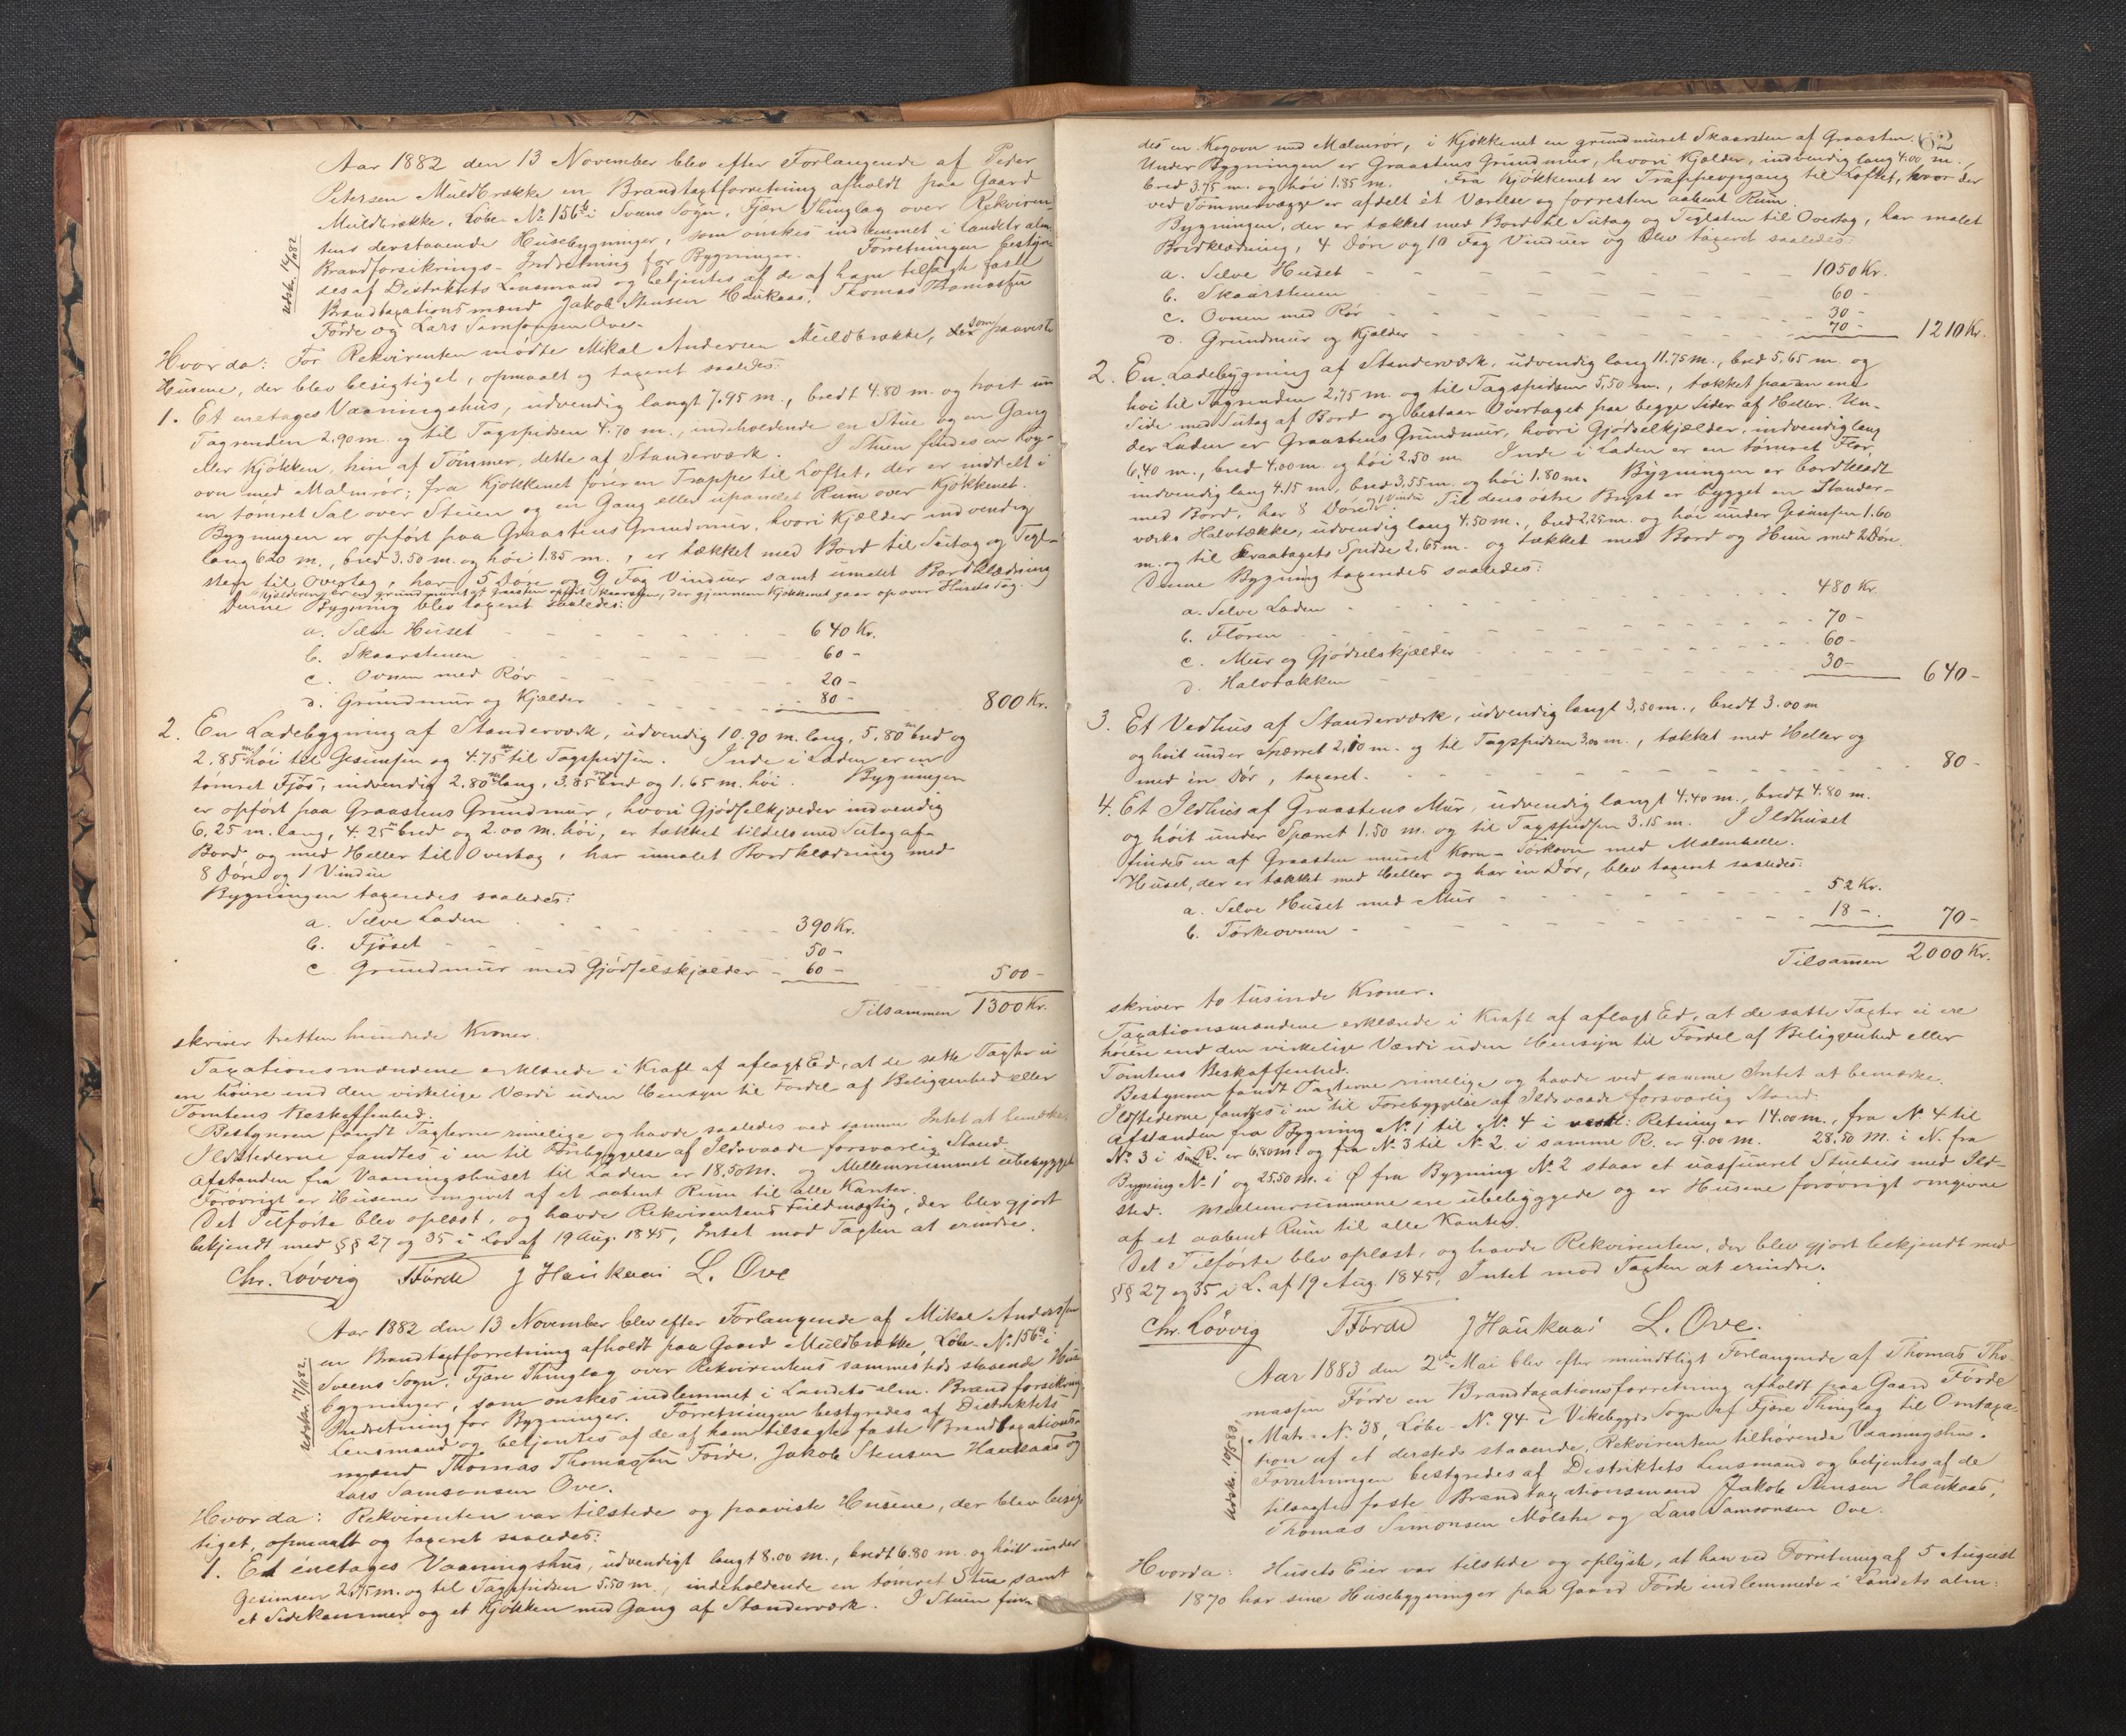 Aar 1882 den 13 November blev efter Forlangende af Peder
Petersen Muldbrække en Brandtagtforretning afholdt paa Gaard
Muldbrække, Løbe-No 156b i Sveens Sogn, Fjære Thinglag over Rekviren-
tens derstaaende Husebygninger, som ønskes indlemmet i Landets alm.
Brandforsikrings-Indretning for Bygninger. Forretningen bestyre-
des af Distriktets Lensmand og betjentes af de af ham tilsagte faste
Brandtaxationsmænd Jakob Stensen Haukaas, Thomas Thomassen
Førde og Lars Samsonsen Ove.
Udsk. 14/11 82
Hvorda: For Rekvirenten mødte Mikal Andersen Muldbrække, som paaviste
Husene, der blev besigtiget, opmaalt og taxeret saaledes:
1. Et enetages Vaaningshus, udvendig langt 7.95 m., bredt 4.80 m. og høit un
Tagrenden 2.90 m. og til Tagspidsen 4.70 m., indeholdende en Stue og en Gang
eller Kjøkken, hin af Tømmer, dette af Standerværk. I Stuen findes en Kog-
ovn med Malmrør; fra Kjøkkenet fører en Trappe til Loftet, der er inddelt i
en tømret Sal over Stuen og en Gang eller upanelet Rum over Kjøkkenet.
Bygningen er opført paa Graastens Grundmur, hvori Kjælder indvendig
lang 6.20 m., bred 3.50 m. og høi 1.85 m., er tækket med Bord til Sutag og Tegl-
sten til Overtag, har 5 Døre og 9 Fag Vinduer samt umalet Bordklædning
I Kjælderen er en grundmuret af Graasten opført Skaarsten, der gjennem Kjøkkenet gaar op over Husets Tag.
Denne Bygning blev taxeret saaledes:
a. Selve Huset 640 Kr.
b. Skaarstenen 60 -
c. Ovnen med Rør 20 -
d. Grundmur og Kjælder 80 - 800 Kr.
2. En Ladebygning af Standerværk, udvendig 10.90 m. lang, 5.80 m bred og
2.85 m høi til Gesimsen og 4.75 m til Tagspidsen. Inde i Laden er en
tømret Fjøs, indvendig 2.80 m lang, 3.85 m bred og 1.65 m. høi. Bygningen
er opført paa Graastens Grundmur, hvori Gjødselkjælder indvendig
6.25 m. lang, 4.25 m bred og 2.00 m. høi, er tækket tildels med Sutag af
Bord og med Heller til Overtag, har umalet Bordklædning med
8 Døre og 1 Vindue
Bygningen taxeredes saaledes:
a. Selve Laden 390 Kr.
b. Fjøset 50 -
c. Grundmur med Gjødselskjælder - 60 - 500 -
Tilsammen 1300 Kr.
skriver tretten hundrede Kroner.
Taxationsmændene erklærede i Kraft af aflagt Ed, at de satte Taxter ei
ere høiere end den virkelige Værdi uden Hensyn til Fordel af Beliggenhed eller
Tomtens Beskaffenhed.
Bestyreren fandt Taxterne rimelige og havde saaledes ved samme Intet at bemærke.
Ildstederne fandtes i en til Forebyggelse af Ildsvaade forsvarlig Stand
Afstanden fra Vaaningshuset til Laden er 18.50 m. og Mellemrummet ubebygget
Forøvrigt er Husene omgivet af et aabent Rum til alle Kanter.
Det Tilførte blev oplæst, og havde Rekvirentens Fuldmægtig, der blev gjort
bekjendt med §§ 27 og 35 i Lov af 19 Aug. 1845, Intet mod Taxten at erindre.
Chr. Løvvig TFørde J Haukaas L. Ove
Aar 1882 den 13 November blev efter Forlangende af Mikal Anderssen
en Brandtagtforretning afholdt paa Gaard Muldbrække, Løbe-No 156a i
Sveens Sogn, Fjære Thinglag over Rekvirentens sammesteds staaende Huse-
bygninger, som ønskes indlemmet i Landets alm. Brandforsikrings
Indretning for Bygninger. Forretningen bestyredes af Distriktets
Lensmand og betjentes af de af ham tilsagte faste Brandtaxations-
mænd Thomas Thomassen Førde, Jakob Stensen Haukaas og
Lars Samsonsen Ove.
Udskr. 17/11 82.
Hvorda: Rekvirenten var tilstede og paaviste Husene, der blev besig-
tiget, opmaalt og taxeret saaledes:
1. Et enetages Vaaningshus, udvendigt langt 8.00 m., bredt 6.80 m. og høit under
Gesimsen 2.75 m. og til Tagspidsen 5.50 m., indeholdende en tømret Stue samt
et Sidekammer og et Kjøkken med Gang af Standerværk. I Stuen fin-
62
des en Kogovn med Malmrør, i Kjøkkenet en grundmuret Skaarsten af Graasten.
Under Bygningen er Graastens Grundmur, hvori Kjælder, indvendig lang 4.00 m.,
bred 3.75 m. og høi 1.85 m. Fra Kjøkkenet er Trappeopgang til Loftet, hvor der
ved Tømmervægge er afdelt ét Værelse og forresten aabent Rum.
Bygningen, der er tækket med Bord til Sutag og Teglsten til Overtag, har malet
Bordklædning, 4 Døre og 10 Fag Vinduer og blev taxeret saaledes:
a. Selve Huset 1050 Kr.
b. Skaarstenen 60 -
c. Ovnen med Rør 30 -
d. Grundmur og Kjælder 70 - 1210 Kr.
2. En Ladebygning af Standerværk, udvendig lang 11.75 m., bred 5,65 m. og
høi til Tagrenden 2,75 m. og til Tagspidsen 5,50 m., tækket paa den ene
Side med Sutag af Bord og bestaar Overtaget paa begge Sider af Heller. Un-
der Laden er Graastens Grundmur, hvori Gjødselkjælder, indvendig lang
6,40 m., bred 4.00 m. og høi 2.50 m. Inde i Laden er en tømret Flor,
indvendig lang 4.15 m., bred 3,55 m. og høi 1.80 m. Bygningen er bordklædt
med Bord, har 8 Døre og 1 Vindue. Til dens østre Bryst er bygget en Stander-
værks Halvtække, udvendig lang 4.50 m., bred 2,25 m. og høi under Gesimsen 1.60
m. og til Skraatagets Spidse 2,65 m. og tækket med Bord og Huun med 2 Døre.
Denne Bygning taxeredes saaledes:
a. Selve Laden 480 Kr.
b. Floren 70 -
c. Mur og Gjødselskjælder 60 -
d. Halvtækken 30 - 640 -
3. Et Vedhus af Standerværk, udvendig langt 3,50 m., bredt 3.00 m
og høit under Spærret 2,10 m. og til Tagspidsen 3.00 m., tækket med Heller og
med én Dør, taxeret 80 -
4. Et Ildhus af Graastens Mur, udvendig langt 4.40 m., bredt 4.80 m.
og høit under Spærret 1.50 m. og til Tagspidsen 3.15 m. I Ildhuset
findes en af Graasten muret Korn-Tørkovn med Malmhelle.
Huset, der er tækket med Heller og har én Dør, blev taxeret saaledes:
a. Selve Huset med Mur 52 Kr.
b. Tørkeovnen 18 - 70 -
Tilsammen 2000 Kr.
skriver to tusinde Kroner.
Taxationsmændene erklærede i Kraft af aflagt Ed, at de satte Taxter ei ere
høiere end den virkelige Værdi uden Hensyn til Fordel af Beliggenhed eller
Tomtens Beskaffenhed.
Bestyreren fandt Taxterne rimelige og havde ved samme Intet at bemærke.
Ildstederne fandtes i en til Forebyggelse af Ildsvaade forsvarlig Stand.
Afstanden fra Bygning No 1 til No 4 i vestl. Retning er 14.00 m., fra No 4 til
No 3 i s. R. er 6.80 m. og fra No 3 til No 2 i samme R. er 9.00 m. 28.50 m. i N. fra
Bygning No 1 og 25.50 m. i Ø fra Bygning No 2 staar et uassureret Stuehus med Ild-
sted. Mellemrummene ere ubebyggede og er Husene forøvrigt omgivne
af et aabent Rum til alle Kanter.
Det Tilførte blev oplæst, og havde Rekvirenten, der blev gjort bekjendt med
§§ 27 og 35 i L. af 19 Aug. 1845, Intet mod Taxten at erindre.
Chr. Løvvig TFørde J Haukaas L. Ove.
Aar 1883 den 2den Mai blev efter mundtligt Forlangende af Thomas Tho-
massen Førde en Brandtaxationsforretning afholdt paa Gaard Førde
Matr.-No 38, Løbe-No 94 i Vikebygds Sogn af Fjære Thinglag til Omtaxa-
tion af et dersteds staaende, Rekvirenten tilhørende Vaaningshus.
Forretningen bestyredes af Distriktets Lensmand og betjentes af de
tilsagte faste Brandtaxationsmænd Jakob Stensen Haukaas,
Thomas Simonsen Mølstre og Lars Samsonsen Ove.
Udsk. 10/5 83.
Hvorda: Husets Eier var tilstede og oplyste, at han ved Forretning af 5 August
1870 har sine Husebygninger paa Gaard Førde indlemmede i Landets alm: